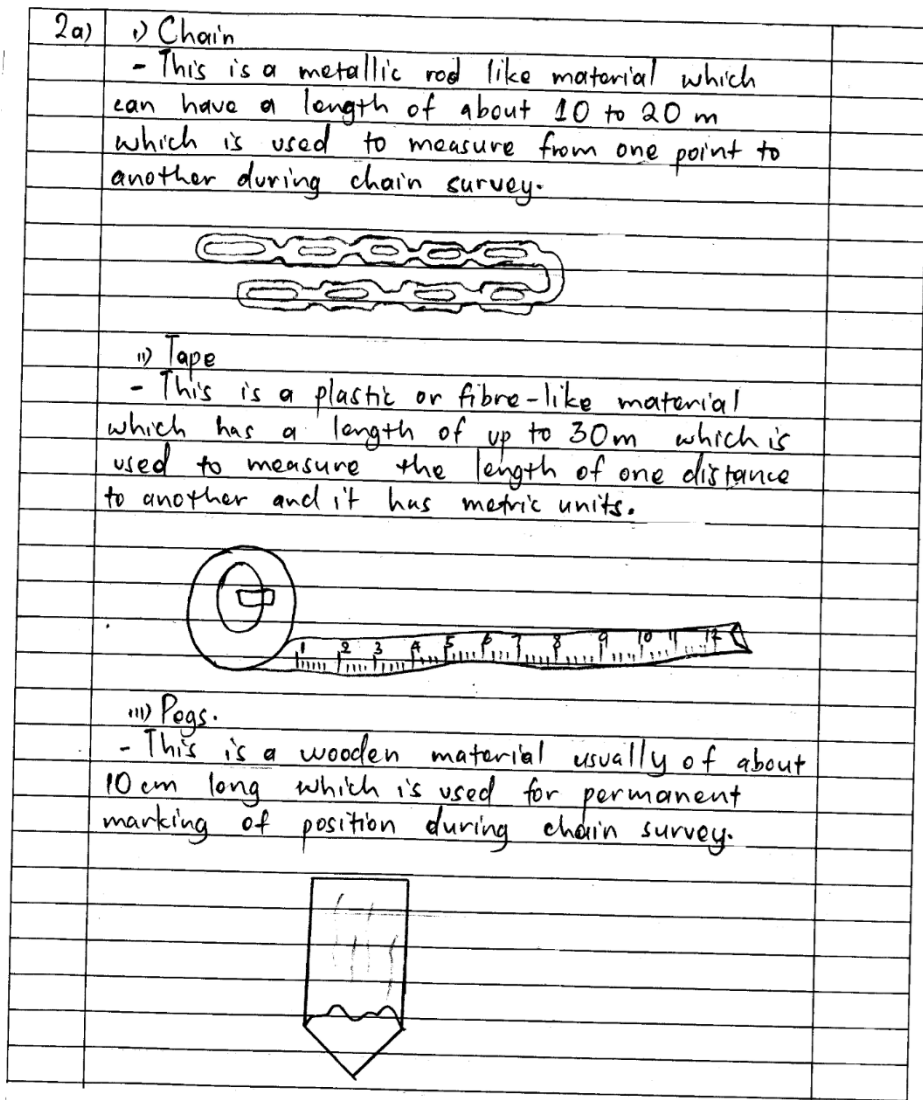 2a) i) Chain
- This is a metallic rod like material which
can have a length of about 10 to 20 m
which is used to measure from one point to
another during chain survey.
ii) Tape
- This is a plastic or fibre-like material
which has a length of up to 30m which is
used to measure the length of one distance
to another and it has metric units.
1 2 3 4 5 6 7 8 9 10 11 12
iii) Pegs.
- This is a wooden material usually of about
10 cm long which is used for permanent
marking of position during chain survey.